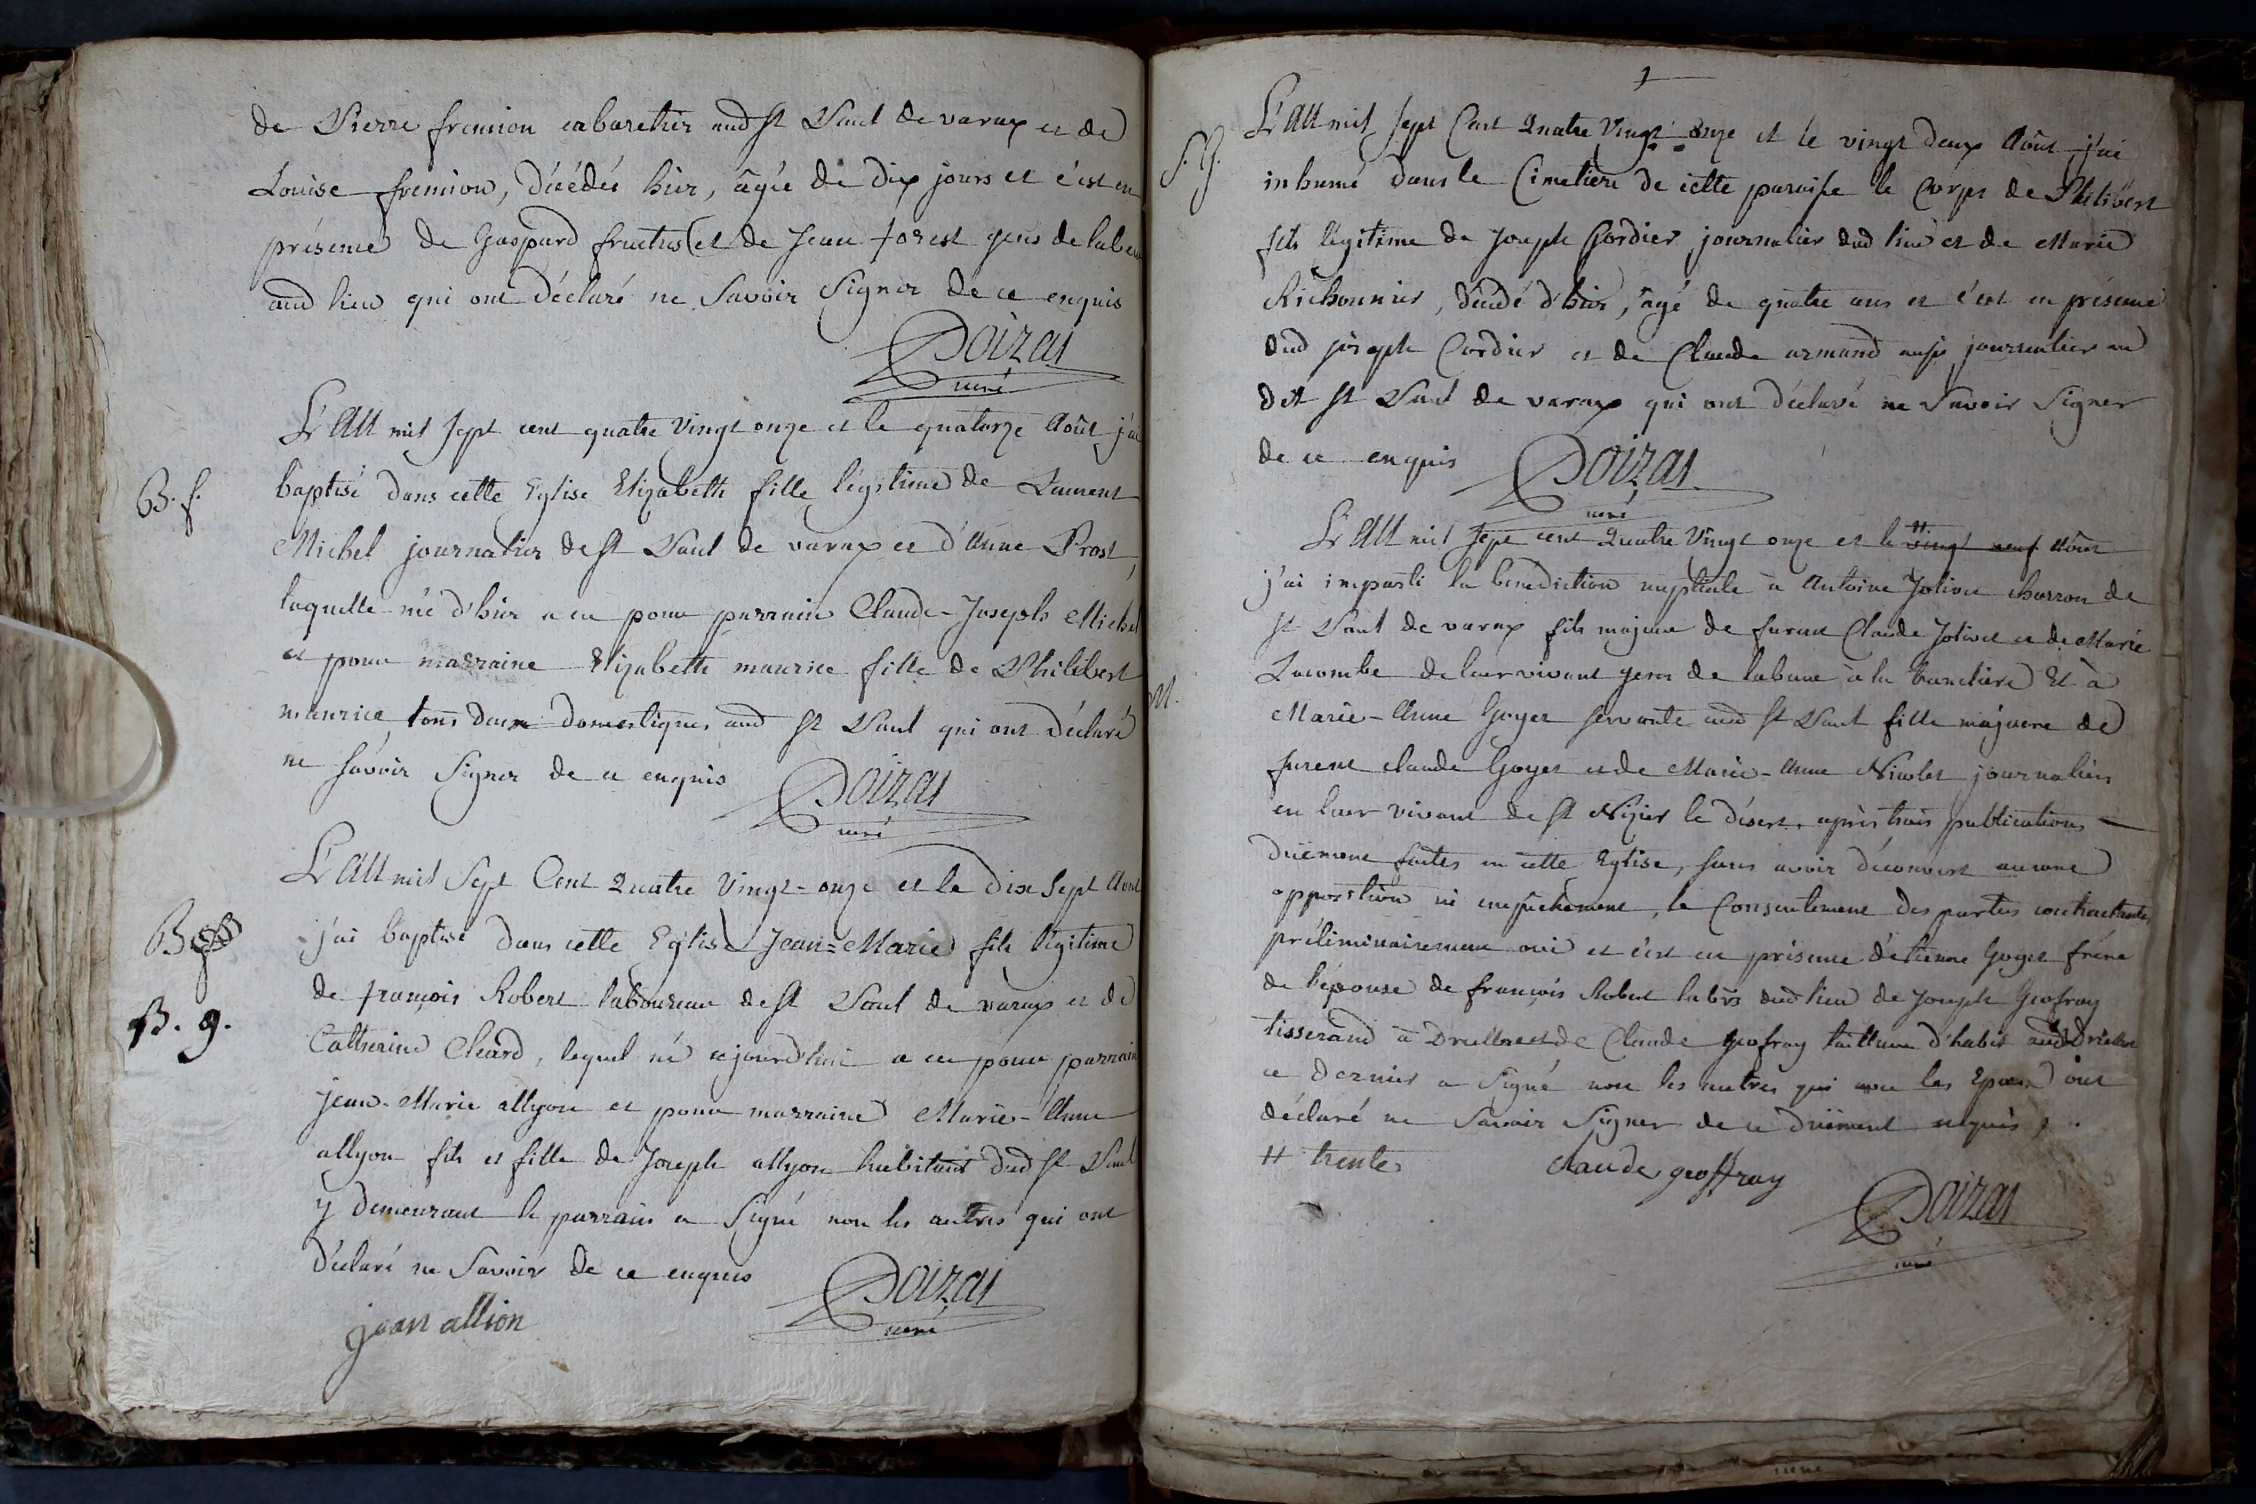 de Pierre fremion cabaretier aud st Paul de varax et de
Louise fremion, décédée hier, âgée de dix jours et c'est en
présence de Gaspard et de Jean forest gens de labeur
aud lieu qui ont déclaré ne Savoir Signer de ce enquis
Doizat
curé
L'An mil Sept cent quatre Vingt onze et le quatorze Août j'ai
B. f.
baptisé dans cette Eglise Elizabeth fille légitime de Laurent
Michel journalier de st Paul de varax et d'Anne Prost,
laquelle née d'hier a eu pour parrain Claude-Joseph Michel
et pour marraine Elizabeth maurice fille de Philibert
maurice tous deux domestiques aud st Paul qui ont déclaré
ne Savoir Signer de ce enquis
Doizat
curé
L'An mil Sept Cent Quatre Vingt-onze et le Dix Sept Aout
B
j'ai baptisé dans cette Eglise Jean=Marie fils légitime
de françois Robert laboureur de st Paul de varax et de
B. g.
Catherine Cheard, lequel né cejourdhui a eu pour parrain
jean-Marie allyon et pour marraine Marie-Anne
allyon fils et fille de Joseph allyon habitant dud st Paul
y demeurant le parrain a Signé non les autres qui ont
déclaré ne Savoir de ce enquis
Doizat
curé
jean allion
L'An mil Sept Cent Quatre Vingt onze et le vingt deux Août j'ai
S. g.
inhumé dans le Cimetière de cette paroisse le Corps de Philibert
fils légitime de Joseph Cordier journalier dud lieu et de Marie
Richonnier, décédé d'hier, âgé de quatre ans et c'est en présence
dud joseph Cordier et de Claude armand aussi journalier au
dit st Paul de varax qui ont déclaré ne Savoir Signer
de ce enquis
Doizat
curé
L'An mil Sept cent Quatre Vingt onze et le # vingt neuf Août
j'ai imparti la bénédiction nuptiale à Antoine Jolivet charron de
st Paul de varax fils majeur de furent Claude Jolivet et de Marie
Lacombe de leur vivant gens de labeur à la Et à
M.
Marie-Anne Goyet servante aud st Paul fille majeure de
furent claude Goyet et de Marie-Anne Nicolet journaliers
en leur vivant de st Nizier le désert, après trois publications
duëment faites en cette Eglise, sans avoir découvert aucune
opposition ni empêchement, le Consentement des parties contractantes
préliminairement oui et c'est en présence d'étienne Goyet frère
de l'épouse de françois Robert labrs dud lieu de Joseph Geofray
tisserand à Druillat et de Claude geofray tailleur d'habit aud Druillat
ce dernier a Signé non les autres qui avec les Epoux ont
déclaré ne Savoir Signer de ce duëment enquis,
# trente
claude geoffray
Doizat
curé